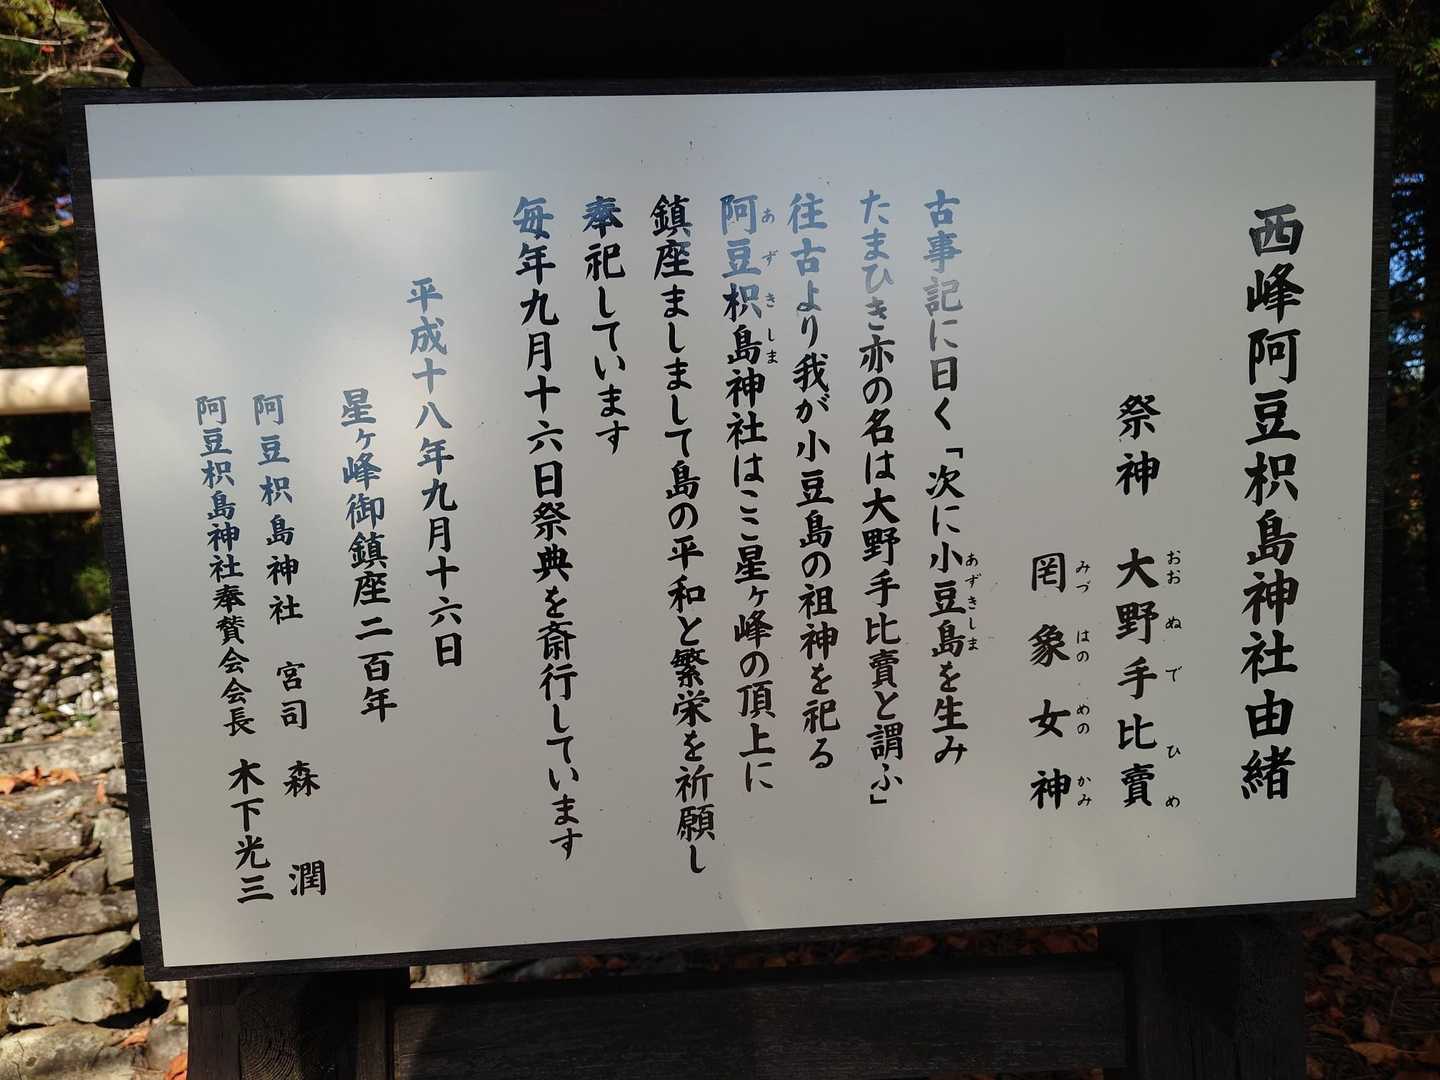 西峰阿豆枳島神社由緒
祭神　大野手比賣
おおぬでひめ
罔象女神
みづはのめのかみ
古事記に曰く「次に小豆島を生み
あずきしま
たまひき亦の名は大野手比賣と謂ふ」
往古より我が小豆島の祖神を祀る
阿豆枳島神社はここ星ヶ峰の頂上に
あずきしま
鎮座ましまして島の平和と繁栄を祈願し
奉祀しています
毎年九月十六日祭典を斎行しています
平成十八年九月十六日
星ヶ峰御鎮座二百年
阿豆枳島神社　宮司　森　潤
阿豆枳島神社奉賛会会長　木下光三